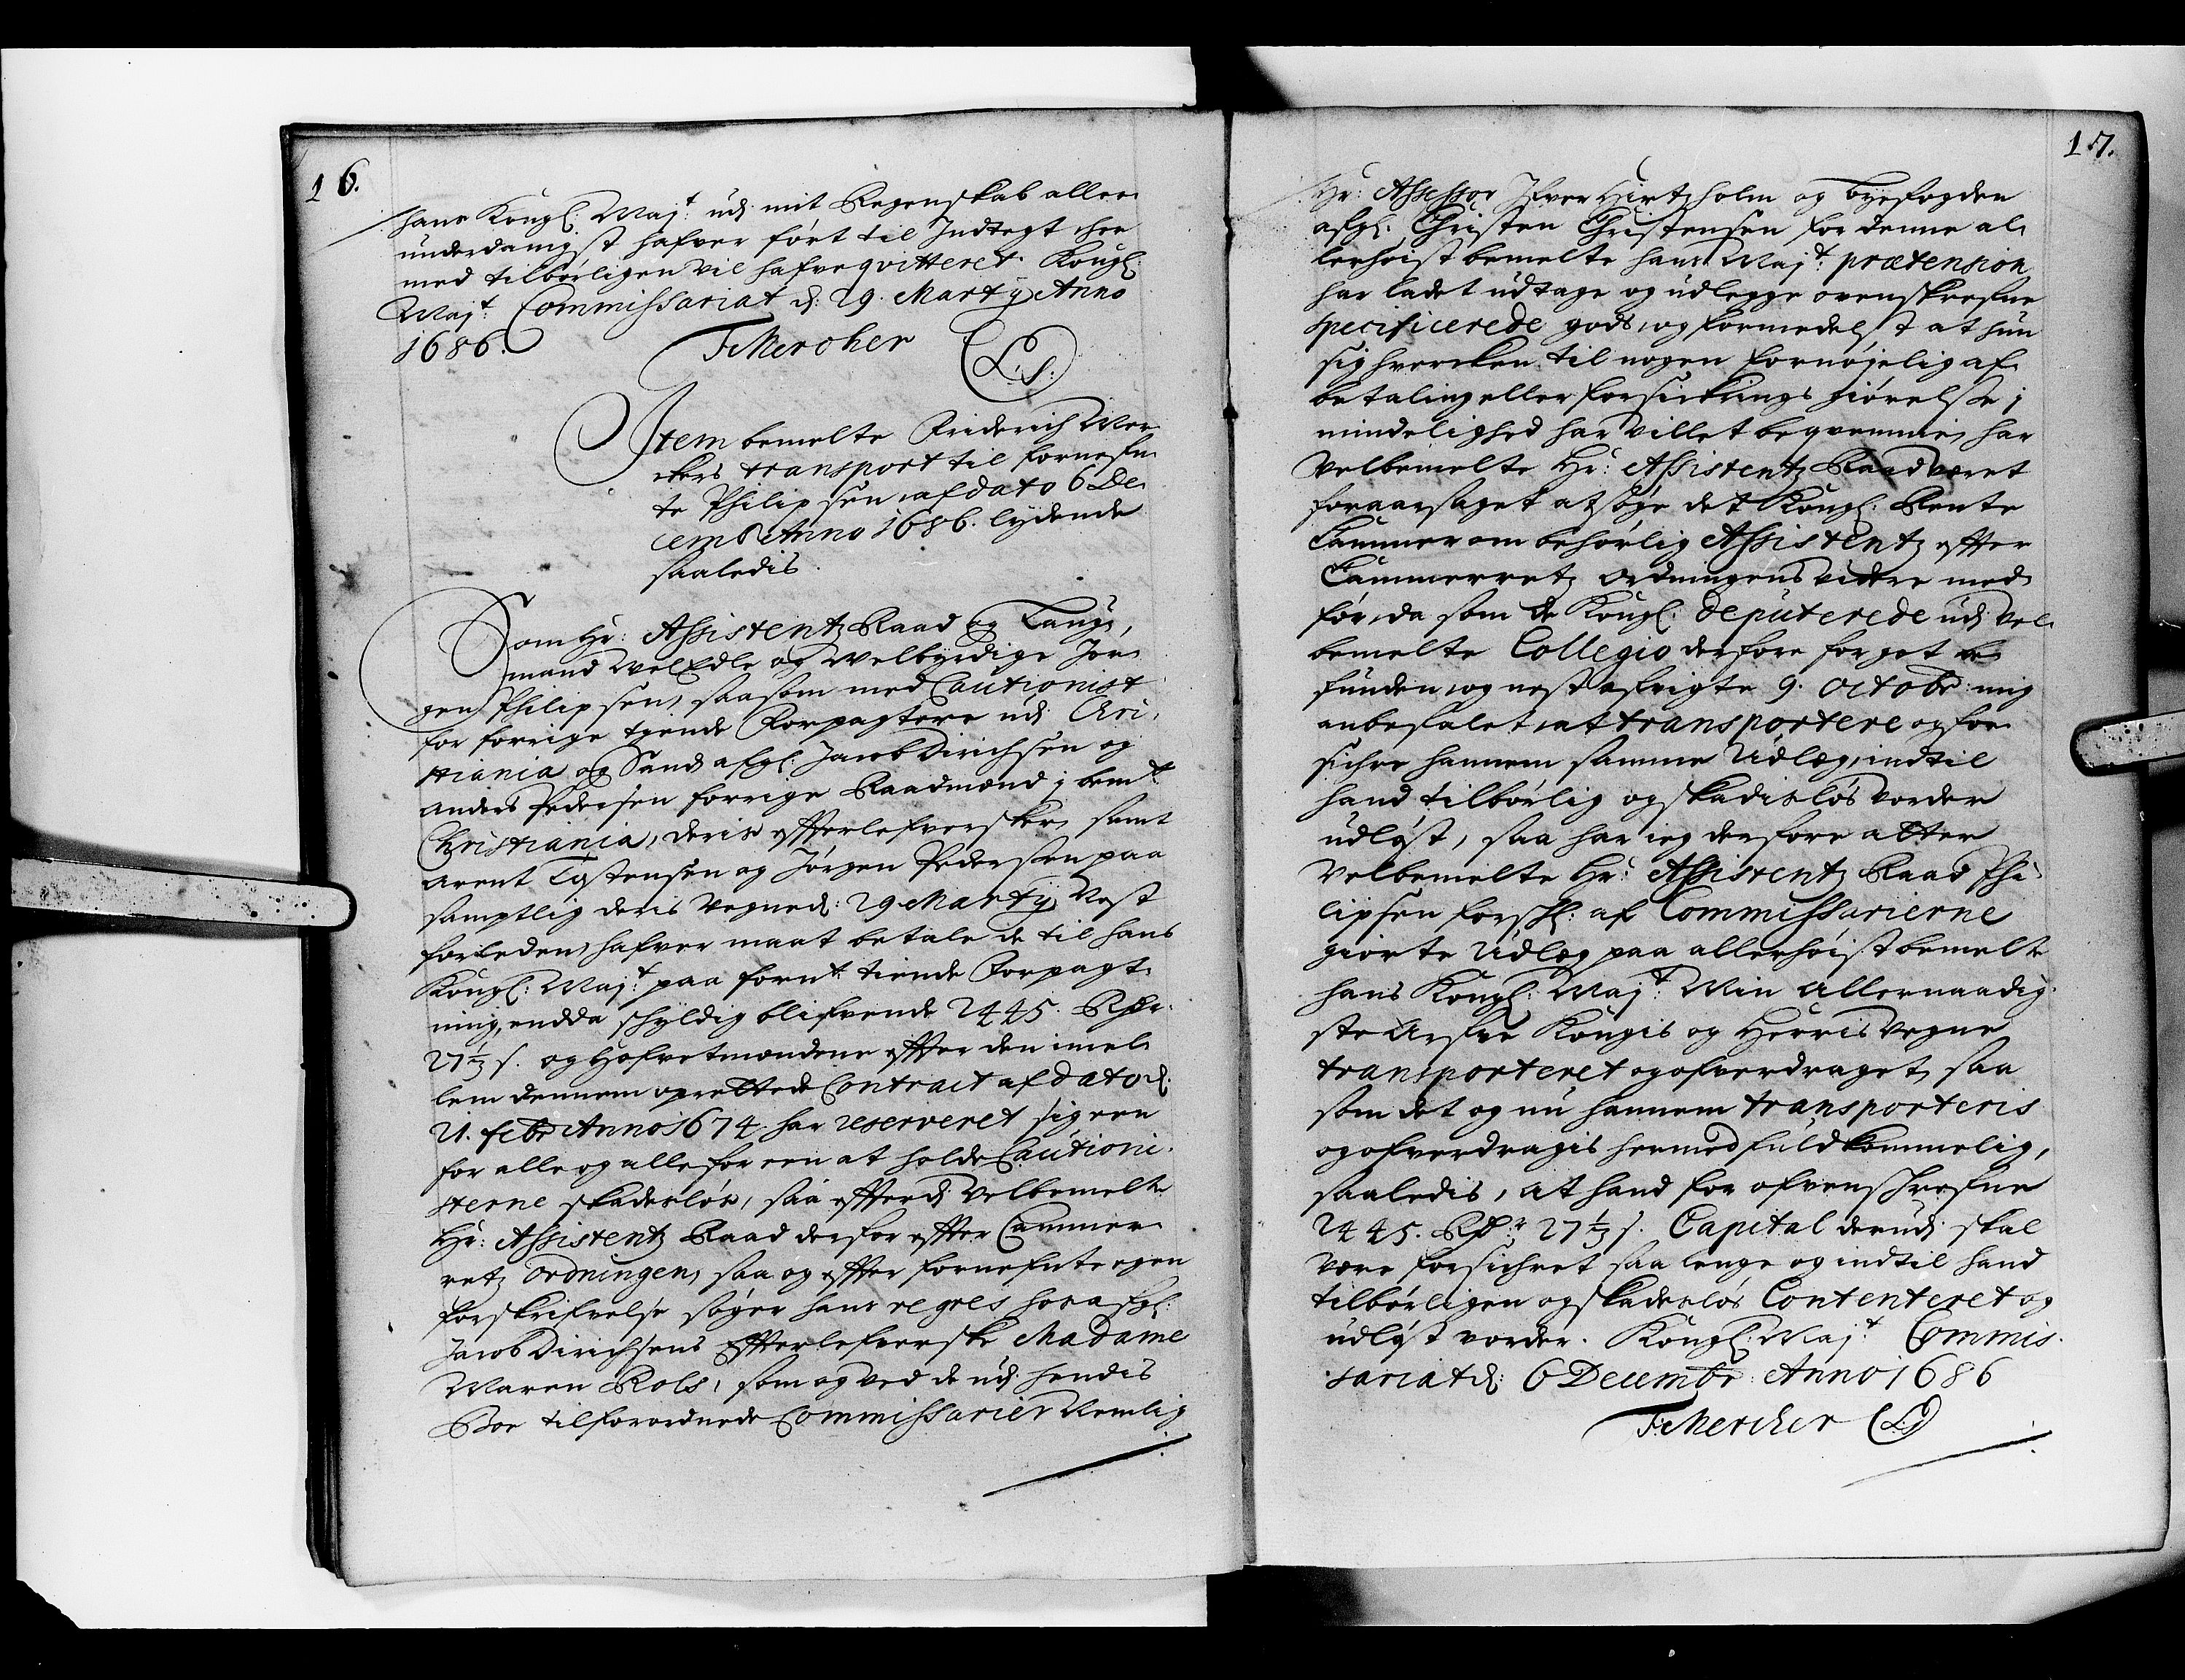 16.
hans Kongl: Maj:t udj mit Regenskab aller
underdanigst hafver ført til Indtegt, her
med tilbørligen vil hafve qvitteret. Kongl:
Maj:t Commissariat d: 29. Martij Anno
1686.
F: Mercher
(L.S.)
Item bemelte Friderich Mer
chers transport til fornefn
te Philipsen, af dato 6 De
cembr Anno 1686. lydende
saaledis
Som Hr: Assistentz Raad og Laug,
mand WelEdle og Welbyrdige Jør
gen Philipsen, saasom med Cautionist
for forrige tiende Forpagtere udj Chri,
stiania og Land afgl: Jacob Dirichsen og
Anders Pedersen forrige Raadmænd j bem:t
Christiania, deris effterlefversker, samt
Arent Tostensen og Jørgen Pedersen paa
samptlig deris vegne d: 29 Martij Nest
forleden, hafver maat betale de til hans
Kongl: Maj:t paa forn:te tiende Forpagt
ning, endda schyldig blifvende 2445. Rdr.
27½ s. og Hofvetmændene effter den imel
lem dennem oprettede Contract af dato d:
21. febr Anno 1674. har reserveret sig een
for alle og alle for een at holde Cautioni
sterne skadesløs, saa effterdj velbemelte
Hr: Assistentz Raad derfor effter Cammer
retz Ordningen, saa og effter fornefnte egen
forskrifvelse søger hans regres hos afgl:
Jacob Dirichsens Effterlefverske Madame
Maren Rols, som og ved de udj hendis
Boe tilforordnede Commissarier Nemlig
17.
Hr: Assessor Ifver Hirtzholm og byefogden
afgl: Christen Christensen for denne al
lerhøist bemelte hans Maj:t prætension
har ladet udtage og udlegge ovenskrefne
specificerede gods, og formedelst at hun
sig hvercken til nogen fornøjelig af
betaling eller forsickrings giørelse j
mindelighed har villet beqvemme, har
Velbemelte Hr: Assistentz Raad været
foraarsaget at søge det Kongl: Rente
Cammer om behørlig Assistentz effter
Cammerretz Ordningens videre med
før, da som de Kongl: deputerede udj vel
bemelte Collegio derfore for got be
funden, og nest afvigte 9. Octobr: mig
anbefalet, at transportere og for
sichre hannem samme Udlæg, indtil
hand tilbørlig og skadisløs vorder
udløst, saa har ieg derfore atter
Velbemelte Hr: Assistentz Raad Phi
lipsen forschl: af Commissarierne
giorte Udlæg paa allerhøist bemelte
hans Kongl: Maj:t Min Allernaadig
ste Arfve Kongis og Herris vegne
transporteret og ofverdraget, saa
som det og nu hannem transporteris
og ofverdragis hermed fuldkommelig,
saaledis, at hand for ofvenschrefne
2445. Rdr 27½ s. Capital derudj skal
være forsichret saa lenge og indtil hand
tilbørligen og skadesløs Contenteret og
udløst vorder. Kongl: Maj:t Commis
sariat d: 6 Decembr: Anno 1686
F: Mercher (L.S.)